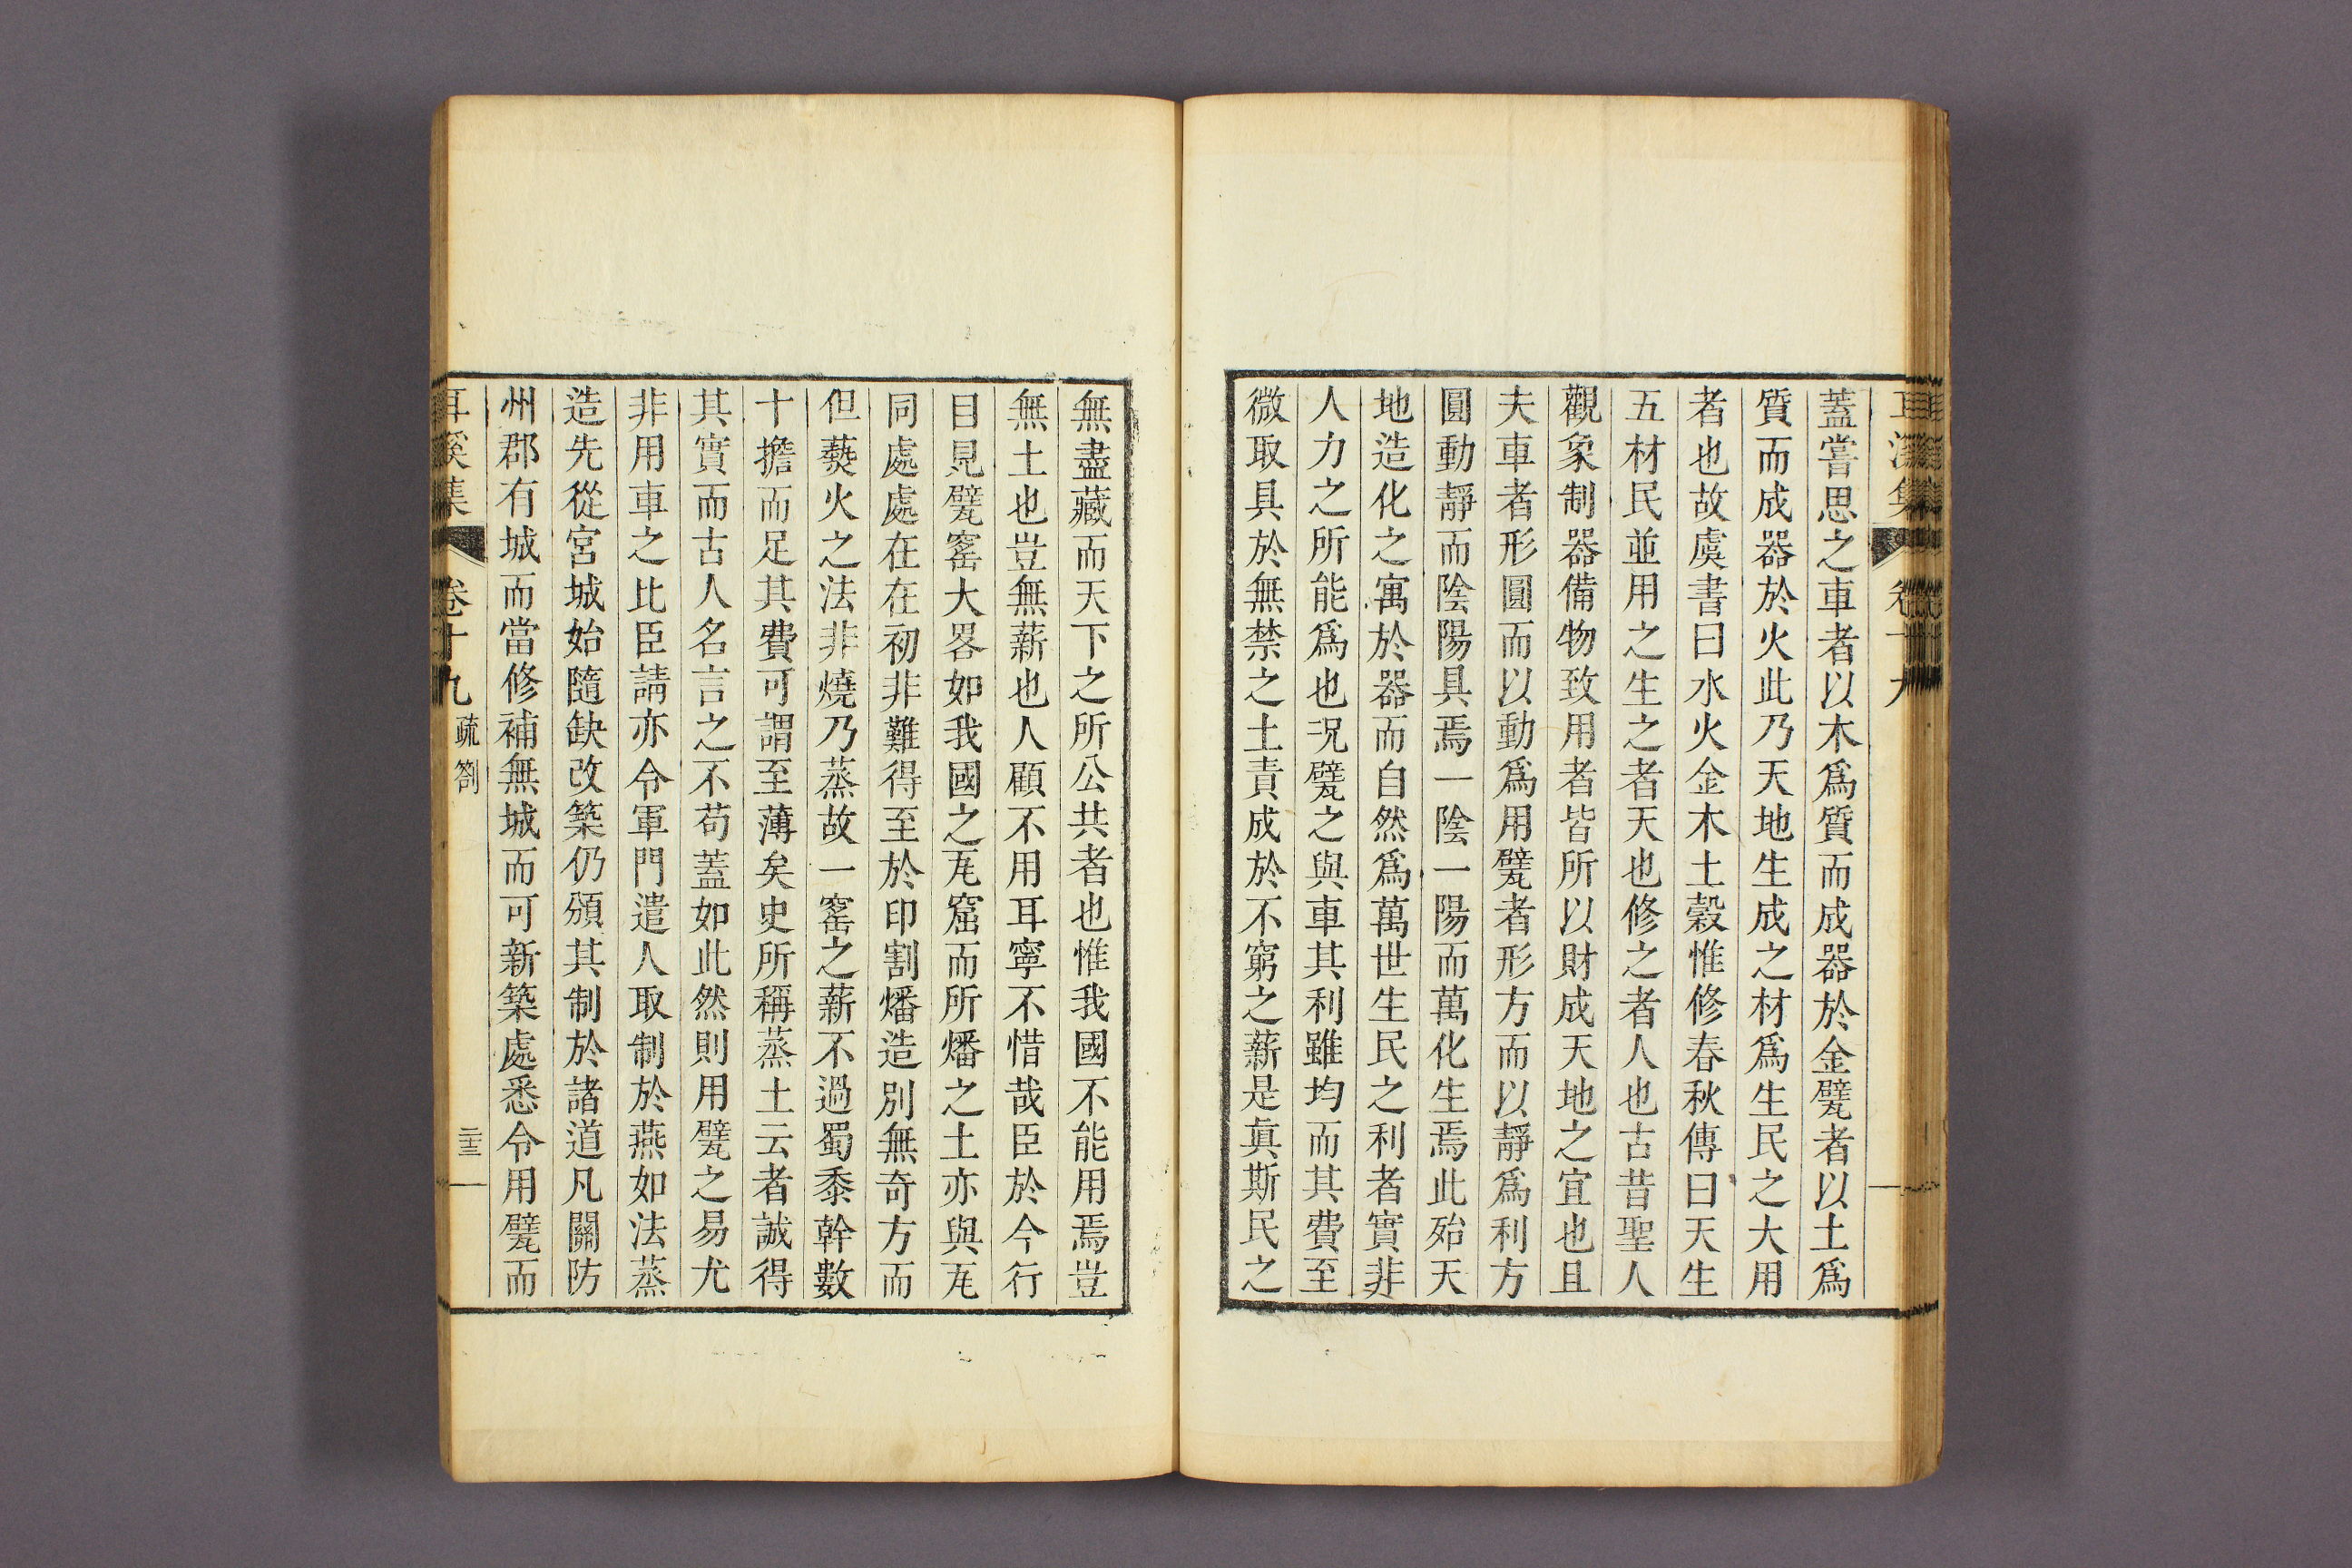 蓋嘗思之車者以木爲質而成器於金甓者以土爲
質而成器於火此乃天地生成之材爲生民之大用
者也故虞書曰水火金木土穀惟修春秋傳曰天生
五材民並用之生之者天也修之者人也古昔聖人
觀象制器備物致用者皆所以財成天地之宜也且
夫車者形圓而以動爲用甓者形方而以靜爲利方
圓動靜而陰陽具焉一陰一陽而萬化生焉此殆天
地造化之寓於器而自然爲萬世生民之利者實非
人力之所能爲也况甓之與車其利雖均而其費至
微取具於無禁之土責成於不窮之薪是眞斯民之
無盡藏而天下之所公共者也惟我國不能用焉豈
無土也豈無薪也人顧不用耳寧不惜哉臣於今行
目見甓窰大畧如我國之瓦窟而所燔之土亦與瓦
同處處在在初非難得至於印割燔造別無奇方而
但爇火之法非燒乃蒸故一窰之薪不過蜀黍幹數
十擔而足其費可謂至薄矣史所稱蒸土云者誠得
其實而古人名言之不苟蓋如此然則用甓之易尤
非用車之比臣請亦令軍門遣人取制於燕如法蒸
造先從宮城始隨缺改築仍頒其制於諸道凡關防
州郡有城而當修補無城而可新築處悉令用甓而
耳溪集 卷十九 疏劄 二十三